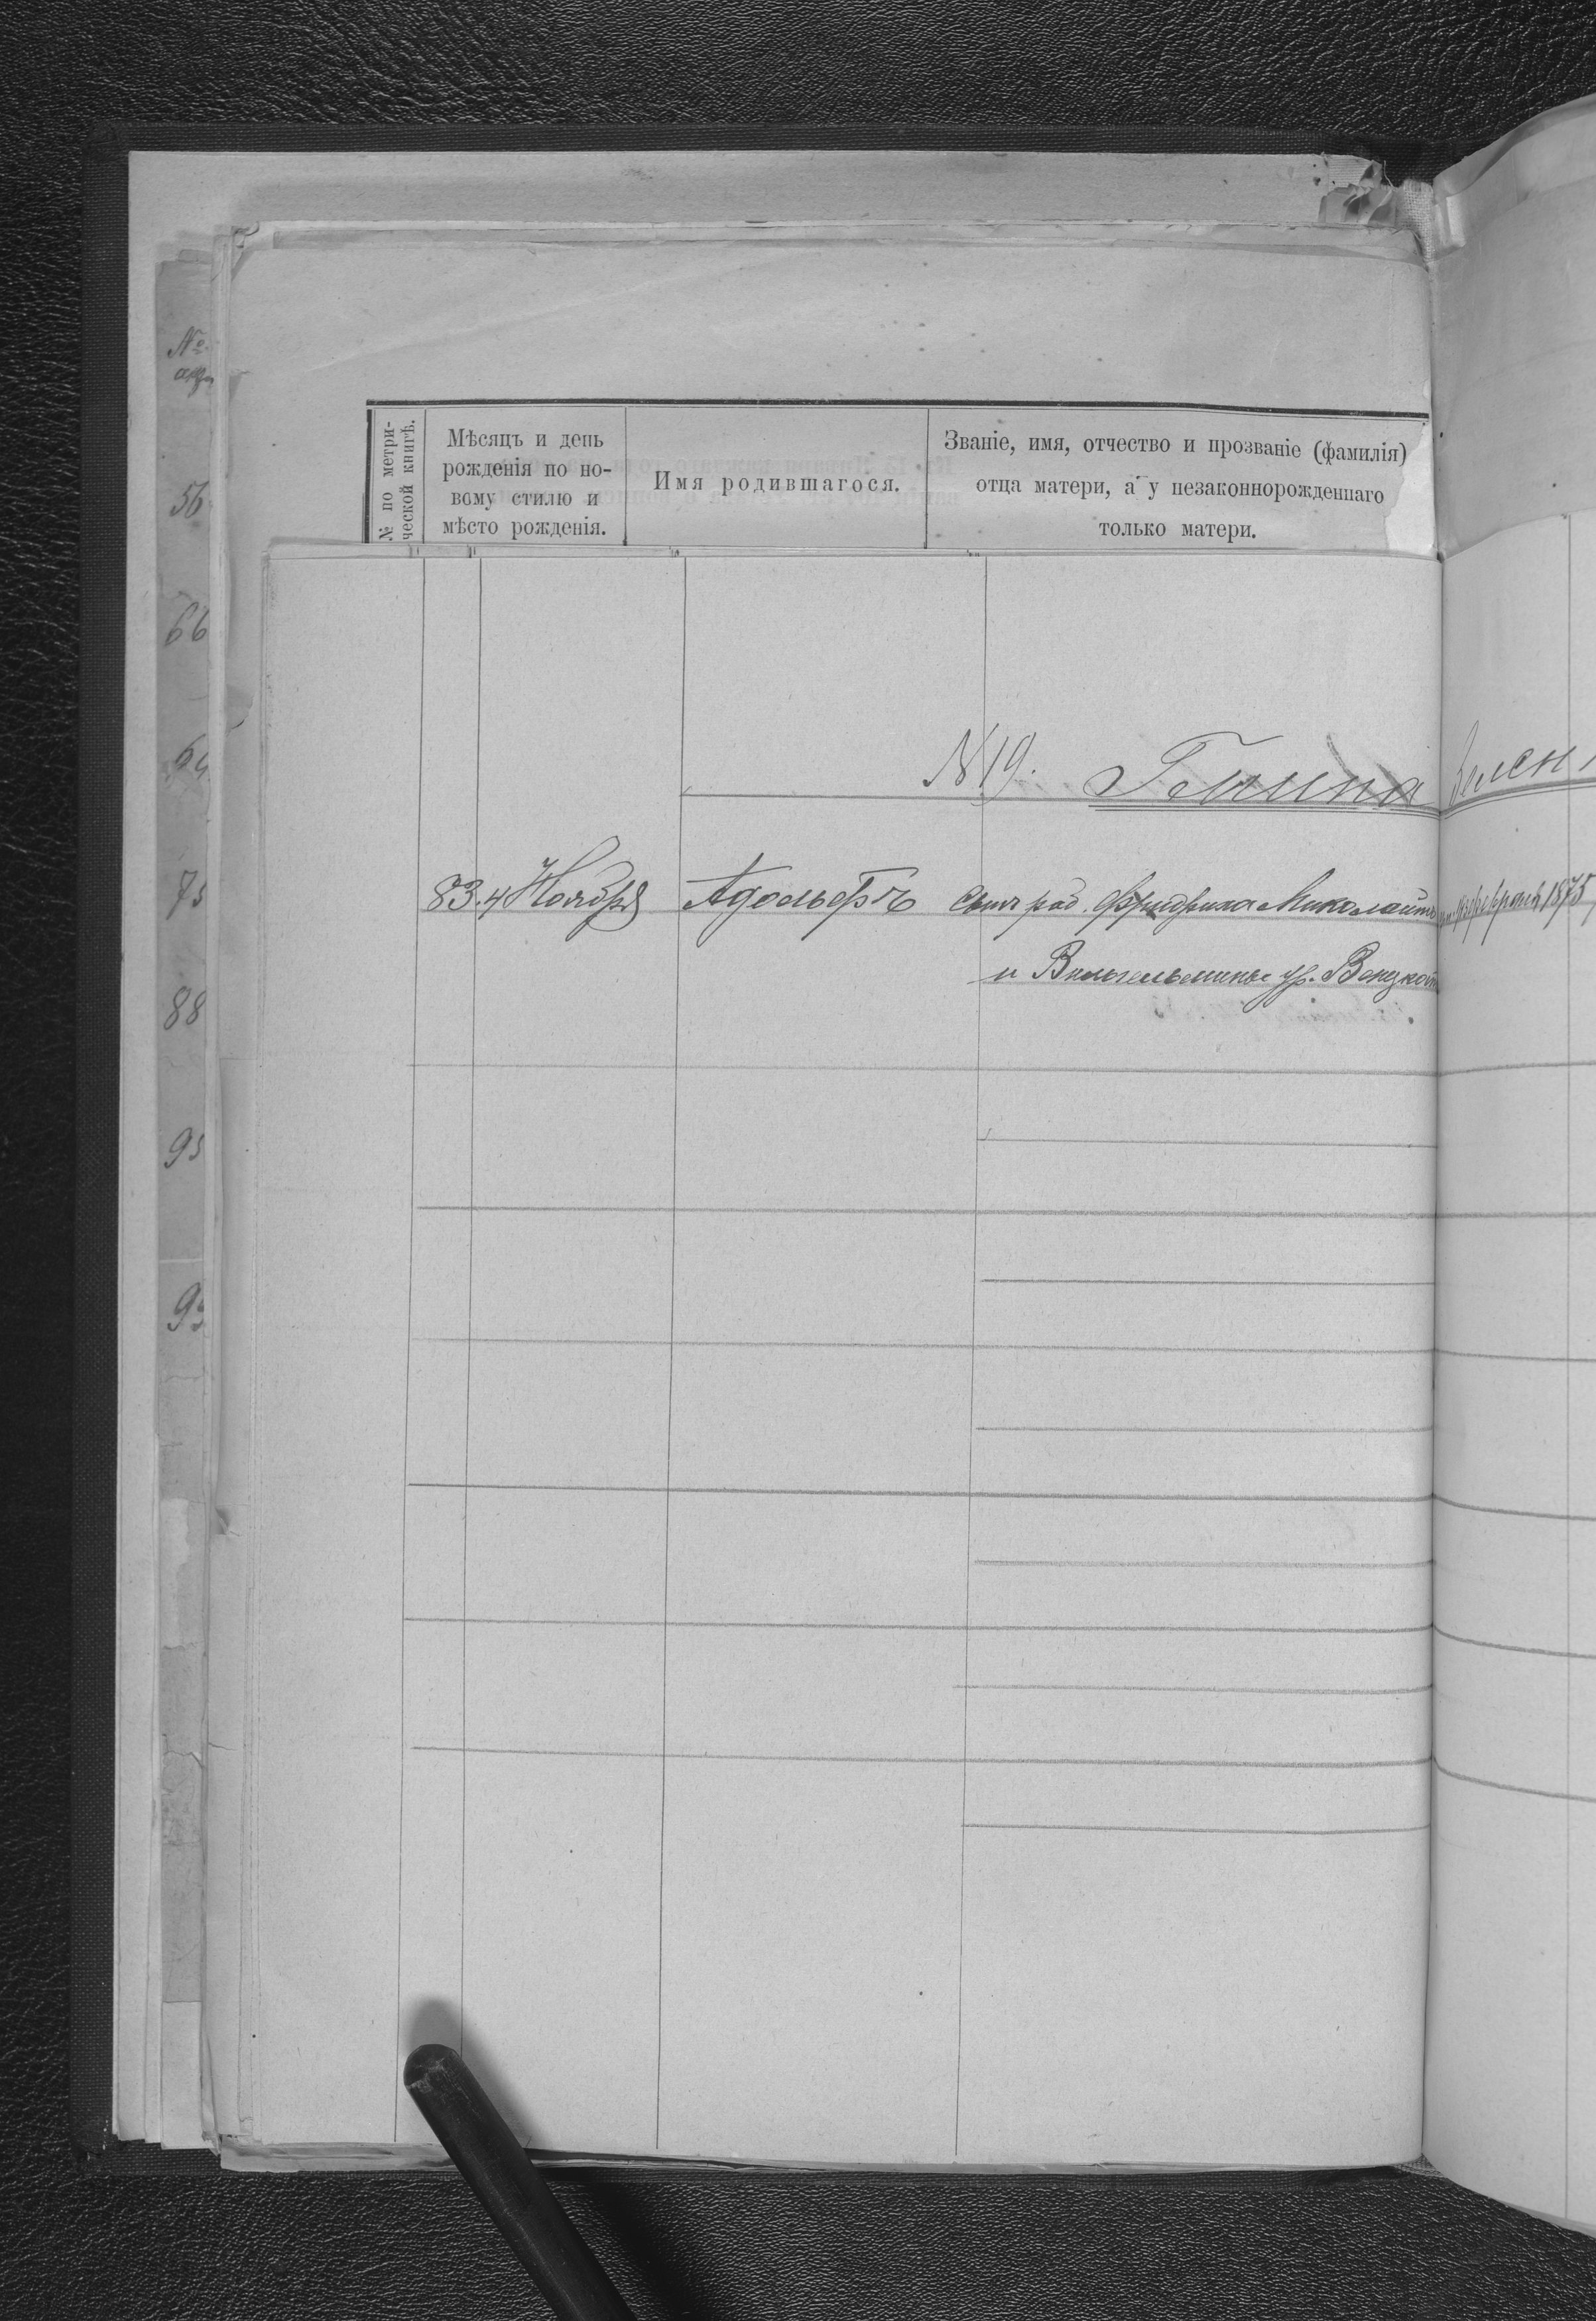 №
56
66
69
75
88
95
№ по метри-
ческой книгѣ.
Мѣсяцъ и день
рожденія по но-
вому стилю и
мѣсто рожденія.
Имя родившагося.
Званіе, имя, отчество и прозваніе (фамилія)
отца матери, а у незаконнорожденнаго
только матери.
№ 19. Гмина
83. 4 Ноября Адольфъ сынъ раб. Фридриха 1875
и Вильгельмины ур.